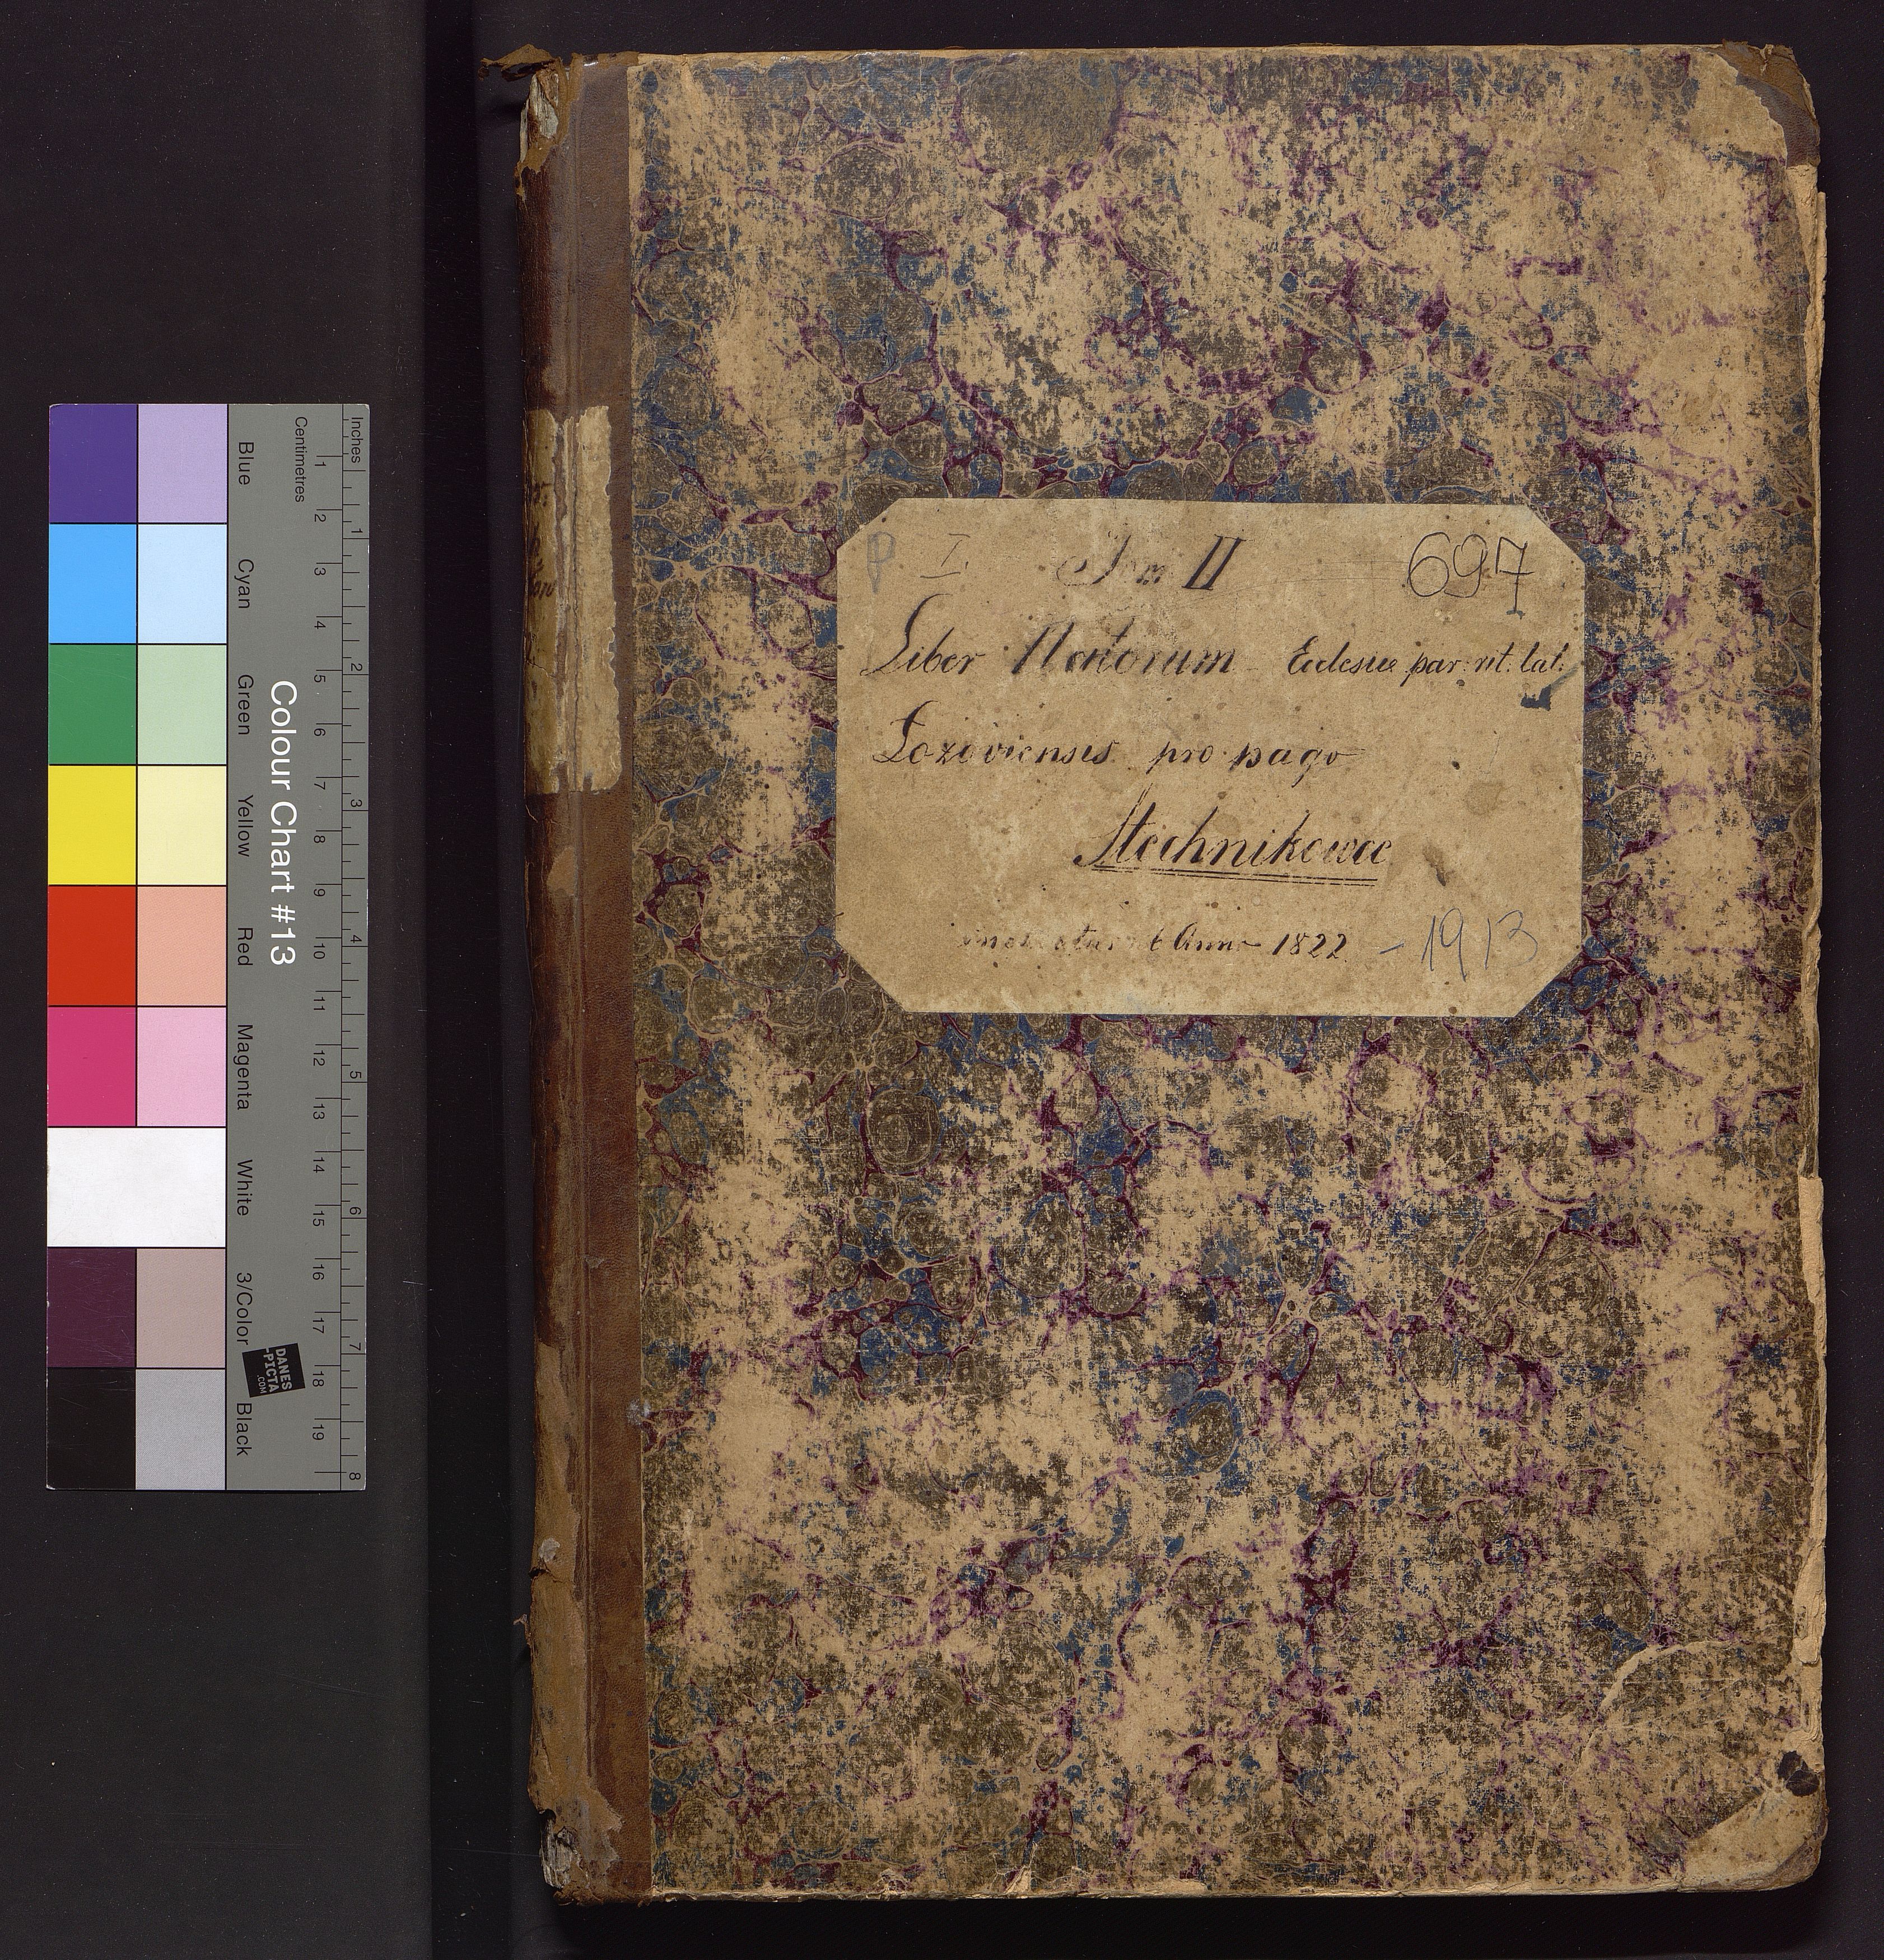 P I. Tom II 697
Liber Ecclesiae par. rit. lat.
Łozoviensis pro pago
Stechnikowce
inchoatur ab Anno 1822 - 1913
Colour Chart #13
Blue Cyan Green Yellow Red Magenta White 3/Color Black
Centimetres 1 2 3 4 5 6 7 8 9 10 11 12 13 14 15 16 17 18 19
Inches 1 2 3 4 5 6 7 8
DANES
-PICTA
.COM